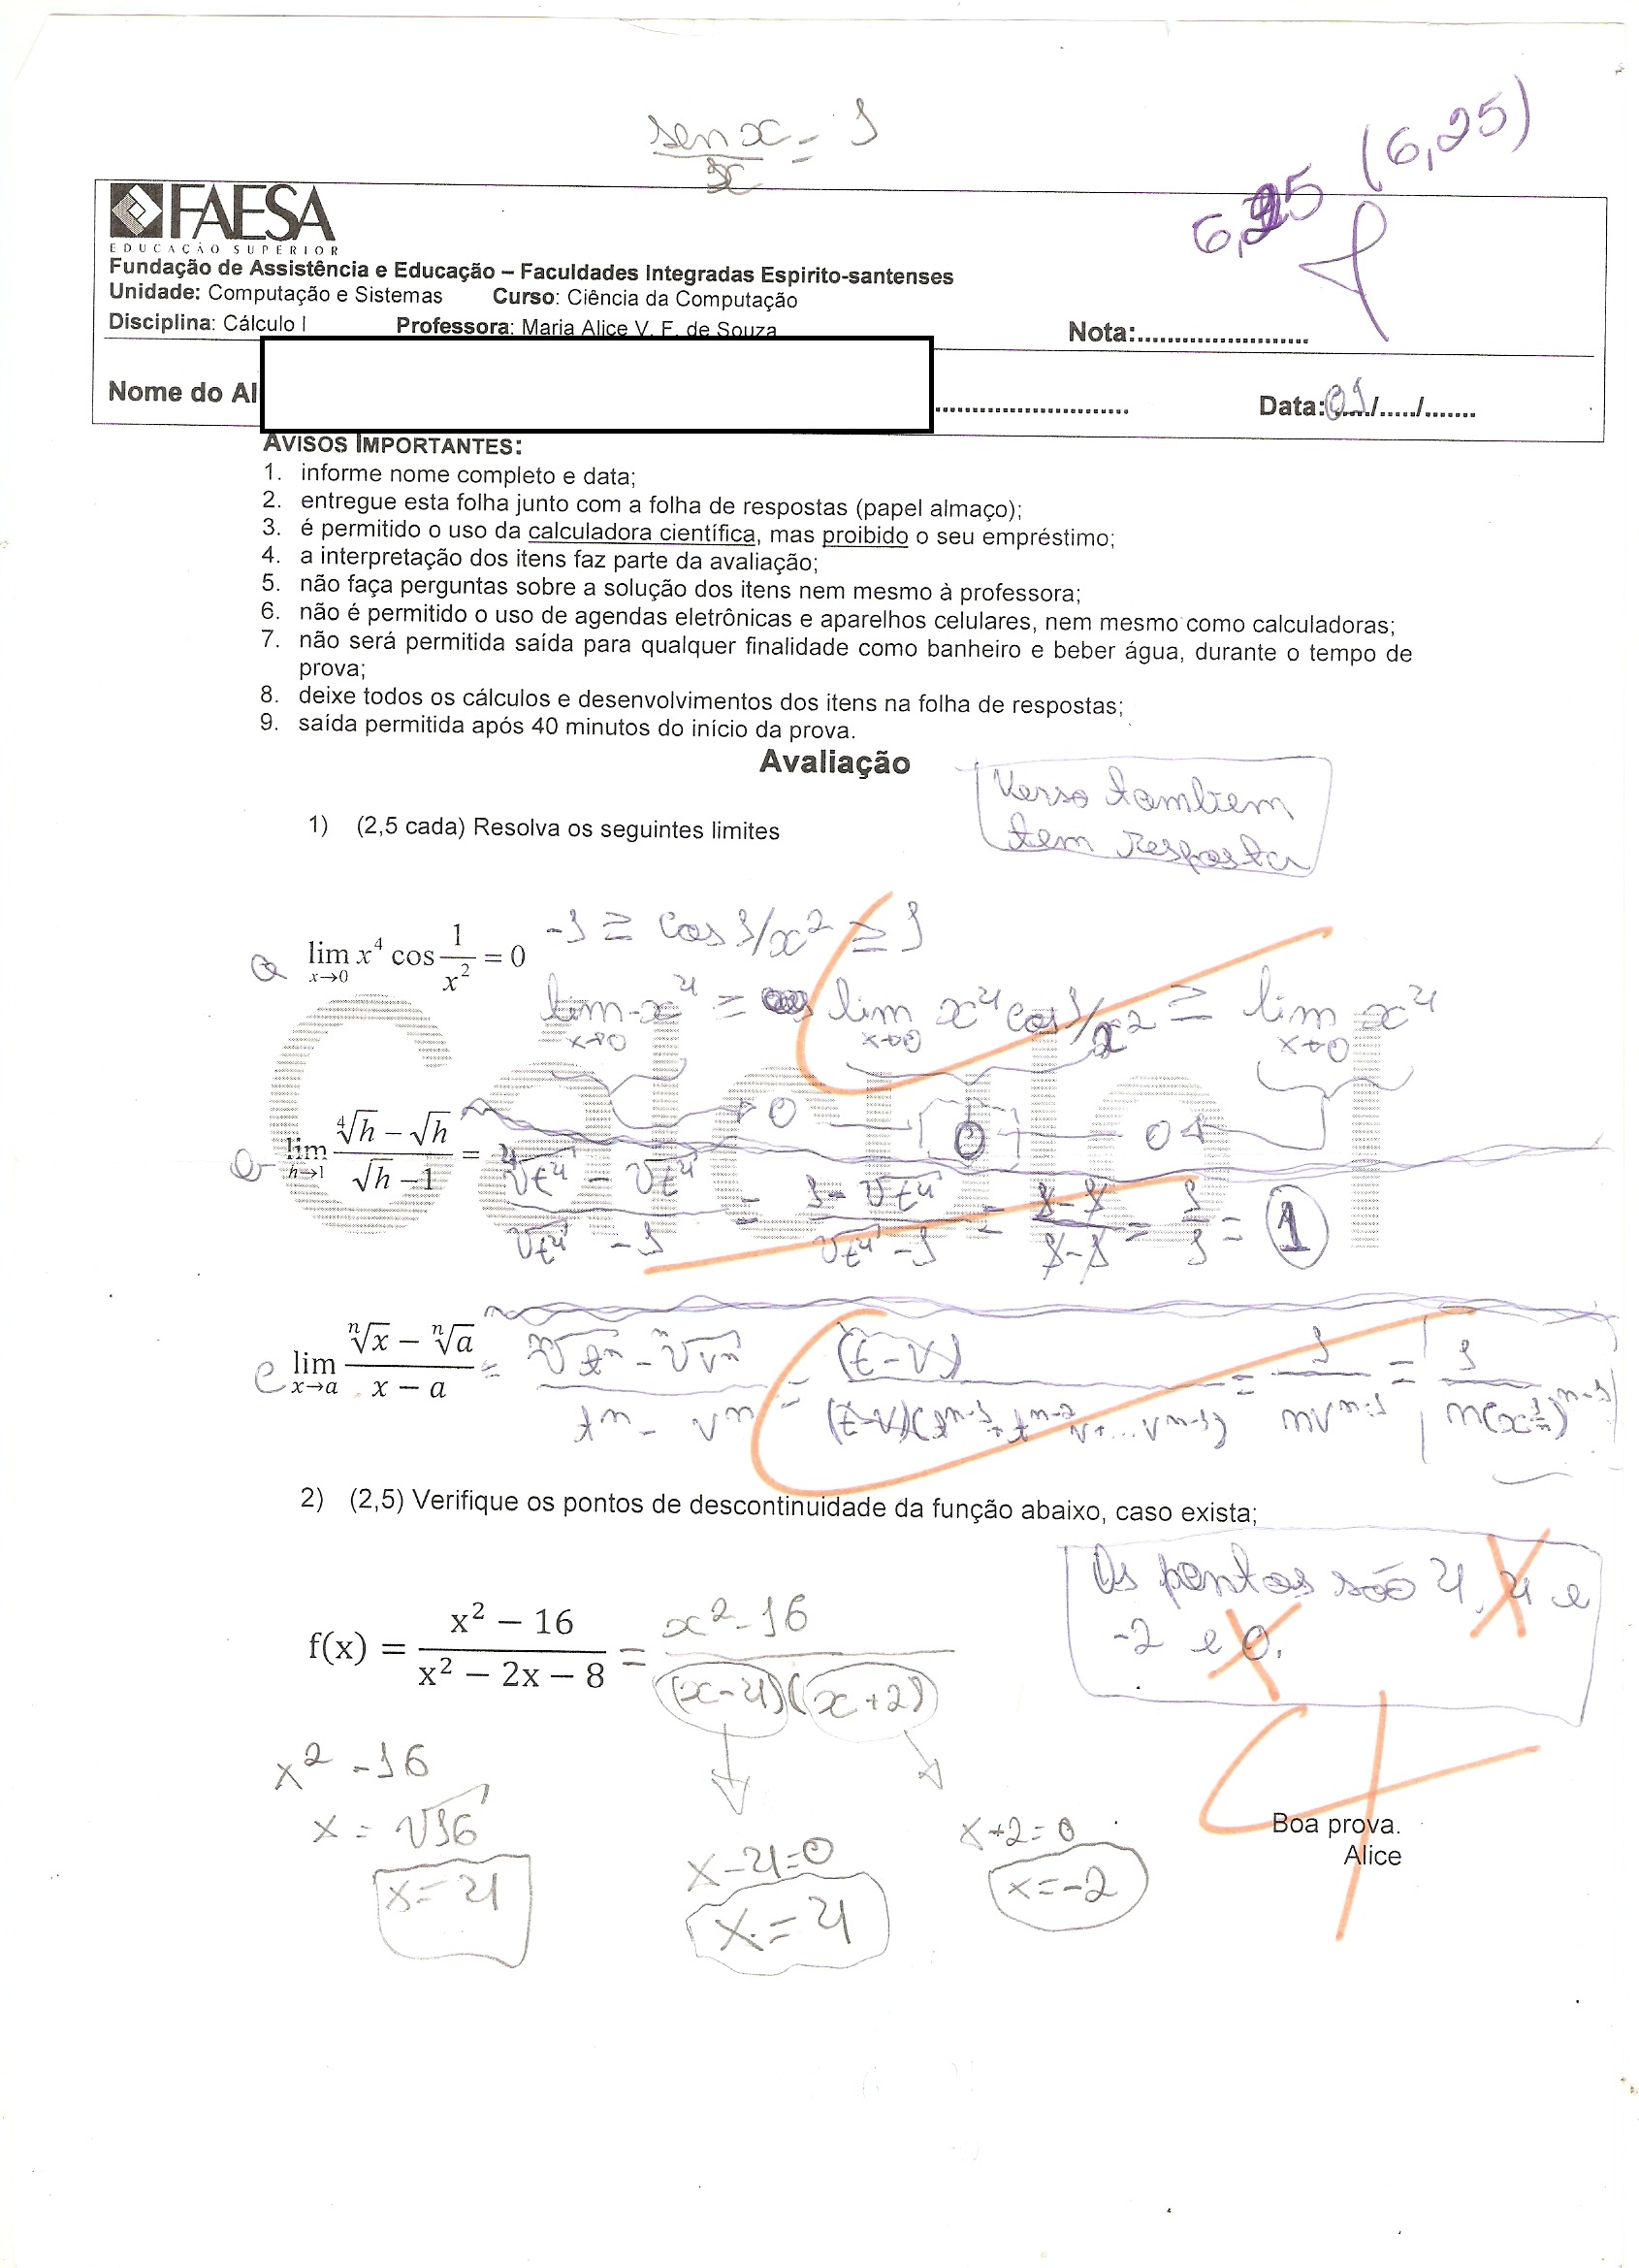 sen x / x = 1
6,25 (6,25)
FAESA
EDUCAÇÃO SUPERIOR
Fundação de Assistência e Educação – Faculdades Integradas Espirito-santenses
Unidade: Computação e Sistemas Curso: Ciência da Computação
Disciplina: Cálculo I Professora: Maria Alice V. F. de Souza
Nota:........................
Nome do Al ........................... Data: 01 /...../.......
AVISOS IMPORTANTES:
1. informe nome completo e data;
2. entregue esta folha junto com a folha de respostas (papel almaço);
3. é permitido o uso da calculadora científica, mas proibido o seu empréstimo;
4. a interpretação dos itens faz parte da avaliação;
5. não faça perguntas sobre a solução dos itens nem mesmo à professora;
6. não é permitido o uso de agendas eletrônicas e aparelhos celulares, nem mesmo como calculadoras;
7. não será permitida saída para qualquer finalidade como banheiro e beber água, durante o tempo de
prova;
8. deixe todos os cálculos e desenvolvimentos dos itens na folha de respostas;
9. saída permitida após 40 minutos do início da prova.
Avaliação
Verso tambem
tem resposta
1) (2,5 cada) Resolva os seguintes limites
lim x→0 x⁴ cos 1/x² = 0 -1 ≥ cos 1/x² ≥ 1
lim x→0 -x⁴ ≥ lim x→0 x⁴ cos 1/x² ≥ lim x→0 x⁴
0 0 0
lim h→1 (⁴√h − √h)/(√h − 1) = (⁴√t⁴ − √t⁴)/(√t⁴ − 1) = (1 − √t⁴)/(√t⁴ − 1) = (1 − 1)/(1 − 1) = 1/1 = 1
lim x→a (ⁿ√x − ⁿ√a)/(x − a) = (ⁿ√tⁿ − ⁿ√vⁿ)/(tⁿ − vⁿ) = (t − v)/((t − v)(tⁿ⁻¹ + tⁿ⁻² v + ... vⁿ⁻¹)) = 1/(nvⁿ⁻¹) = 1/(n(x^(1/n))ⁿ⁻¹)
2) (2,5) Verifique os pontos de descontinuidade da função abaixo, caso exista;
Os pontos são 4, 4 e
-2 e 0.
f(x) = (x² − 16)/(x² − 2x − 8) = (x² − 16)/((x − 4)(x + 2))
x² − 16
x = √16
x = 4
x − 4 = 0
x = 4
x + 2 = 0
x = −2
Boa prova.
Alice